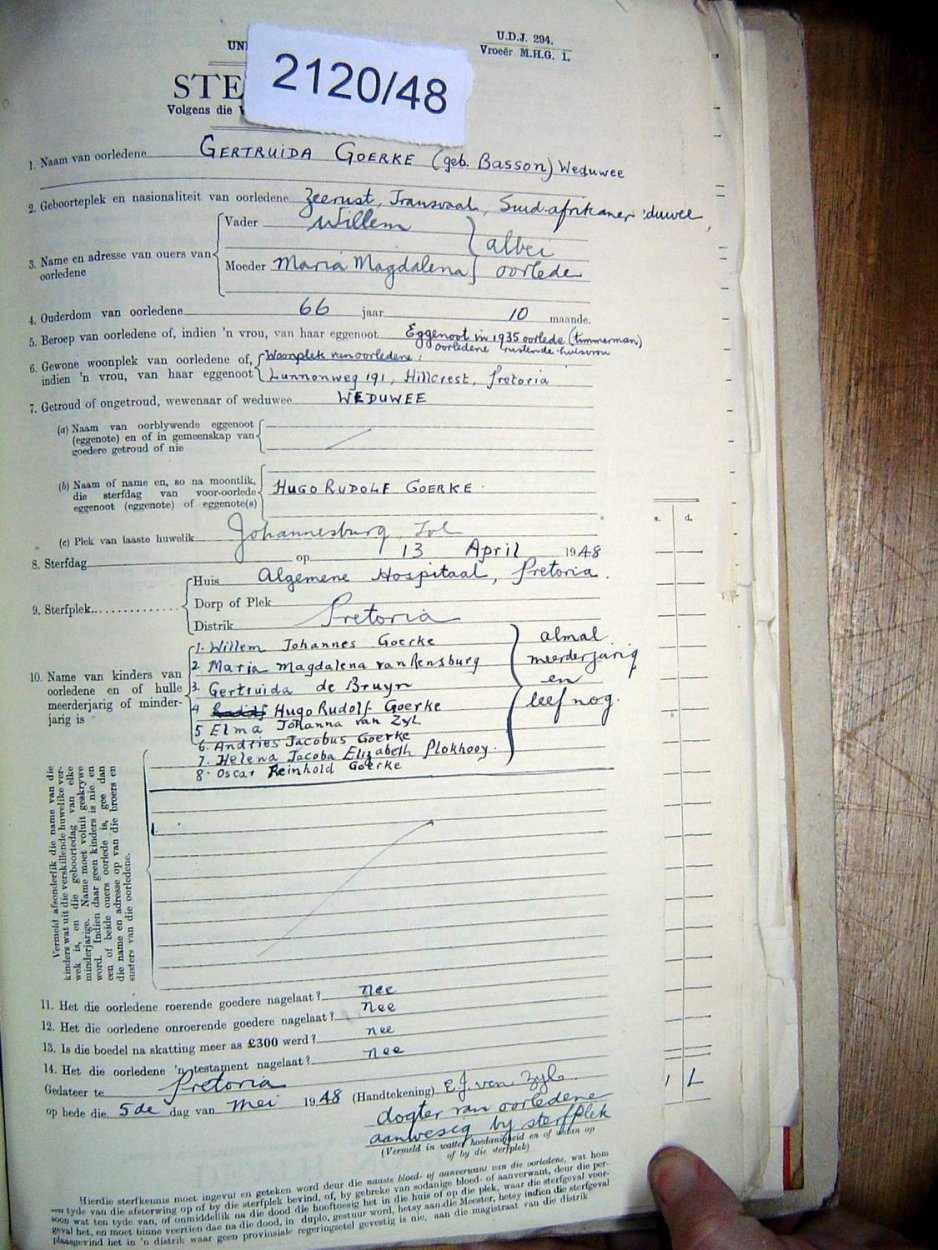 U.D.J. 294.
Vroeër M.H.G. 1.
UNI
2120/48
STE
Volgens die
1. Naam van oorledene GERTRUIDA GOERKE (geb. Basson) Weduwee
2. Geboorteplek en nasionaliteit van oorledene Zeerust, Transvaal, Suid-afrikaner 'duwee
3. Name en adresse van ouers van oorledene
Vader Willem
Moeder Maria Magdalena
albei
oorlede
4. Ouderdom van oorledene 66 jaar 10 maande.
5. Beroep van oorledene of, indien 'n vrou, van haar eggenoot Eggenoot in 1935 oorlede (timmerman)
oorledene rustende huisvrou
6. Gewone woonplek van oorledene of, indien 'n vrou, van haar eggenoot
Woonplek van oorledene:
Lunnonweg 191, Hillcrest, Pretoria
7. Getroud of ongetroud, wewenaar of weduwee WEDUWEE
(a) Naam van oorblywende eggenoot
(eggenote) en of in gemeenskap van
goedere getroud of nie
(b) Naam of name en, so na moontlik,
die sterfdag van voor-oorlede
eggenoot (eggenote) of eggenote(s)
HUGO RUDOLF GOERKE.
(c) Plek van laaste huwelik Johannesburg, Tvl
8. Sterfdag op 13 April 1948
9. Sterfplek
Huis Algemene Hospitaal, Pretoria.
Dorp of Plek
Distrik Pretoria
10. Name van kinders van
oorledene en of hulle
meerderjarig of minder-
jarig is
1. Willem Johannes Goerke
2 Maria Magdalena van Rensburg
3. Gertruida de Bruyn
4 Hugo Rudolf Goerke
5 Elma Johanna van Zyl
6. Andries Jacobus Goerke
7. Helena Jacoba Elizabeth Plokhooy.
8. Oscar Reinhold Goerke
almal
meerderjarig
en
leef nog.
s. d.
Vermeld afsonderlik die name van die
kinders wat uit die verskillende huwelike ver-
wek is, en die geboortedag van elke
minderjarige. Name moet voluit geskrywe
word. Indien daar geen kinders is nie, en
een of beide ouers oorlede is, gee dan
die name en adresse op van die broers en
susters van die oorledene.
11. Het die oorledene roerende goedere nagelaat? nee
12. Het die oorledene onroerende goedere nagelaat? nee
13. Is die boedel na skatting meer as £300 werd? nee
14. Het die oorledene 'n testament nagelaat? nee
Gedateer te Pretoria
op hede die 5de dag van Mei 1948 (Handtekening) E.J. van Zyl
dogter van oorledene
aanwesig by sterfplek
(Vermeld in watter hoedanigheid en of aldan op
of by die sterfplek)
Hierdie sterfkennis moet ingevul en geteken word deur die naaste bloed- of aanverwant van die oorledene, wat hom
ten tyde van die afsterwing op of by die sterfplek bevind, of, by gebreke van sodanige bloed- of aanverwant, deur die per-
soon wat ten tyde van, of onmiddellik na die dood die hooftoesig het in die huis of op die plek, waar die sterfgeval voor-
geval het, en moet binne veertien dae na die dood, in duplo, gestuur word, hetsy aan die Meester, hetsy indien die sterfgeval
plaasgevind het in 'n distrik waar geen provinsiale regeringsetel gevestig is nie, aan die magistraat van die distrik